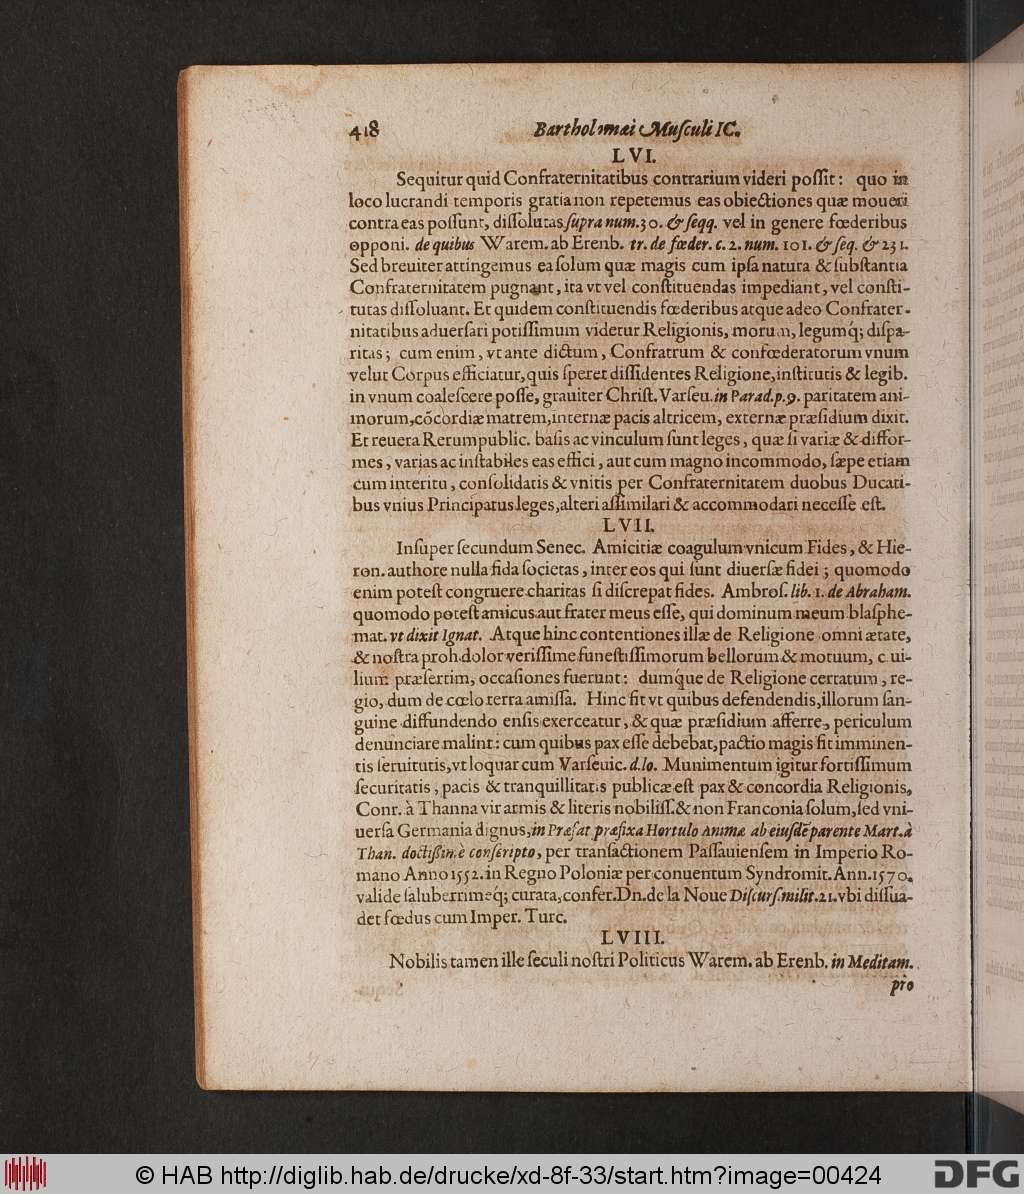 418 Bartholomæi Muſculi IC.
LVI.
Sequitur quid Confraternitatibus contrarium videri poſſit: quo in
loco lucrandi temporis gratia non repetemus eas obiectiones quæ moueri
contra eas poſſunt, diſſolutas ſupra num. 30. & ſeqq. vel in genere fœderibus
opponi. de quibus Warem. ab Erenb. tr. de fœder. c. 2. num. 101. & ſeq. & 231.
Sed breuiter attingemus ea ſolum quæ magis cum ipſa natura & ſubſtantia
Confraternitatem pugnant, ita vt vel conſtituendas impediant, vel conſti-
tutas diſſoluant. Et quidem conſtituendis fœderibus atque adeo Confrater-
nitatibus aduerſari potiſſimum videtur Religionis, morum, legumq́; diſpa-
ritas; cum enim, vt ante dictum, Confratrum & confœderatorum vnum
velut Corpus efficiatur, quis ſperet diſſidentes Religione, inſtitutis & legib.
in vnum coaleſcere poſſe, grauiter Chriſt. Varſeu. in Parad. p. 9. paritatem ani-
morum, cõcordiæ matrem, internæ pacis altricem, externæ præſidium dixit.
Et reuera Rerumpublic. baſis ac vinculum ſunt leges, quæ ſi variæ & diffor-
mes, varias ac inſtabiles eas effici, aut cum magno incommodo, ſæpe etiam
cum interitu, conſolidatis & vnitis per Confraternitatem duobus Ducati-
bus vnius Principatus leges, alteri aſſimilari & accommodari neceſſe eſt.
LVII.
Inſuper ſecundum Senec. Amicitiæ coagulum vnicum Fides, & Hie-
ron. authore nulla fida ſocietas, inter eos qui ſunt diuerſæ fidei; quomodo
enim poteſt congruere charitas ſi diſcrepat fides. Ambroſ. lib. 1. de Abraham.
quomodo poteſt amicus aut frater meus eſſe, qui dominum meum blaſphe-
mat. vt dixit Ignat. Atque hinc contentiones illæ de Religione omni ætate,
& noſtra proh dolor veriſſime funeſtiſſimorum bellorum & motuum, c uI-
lium præſertim, occaſiones fuerunt: dumq́ue de Religione certatum, re-
gio, dum de cœlo terra amiſſa. Hinc fit vt quibus defendendis, illorum ſan-
guine diffundendo enſis exerceatur, & quæ præſidium afferre, periculum
denunciare malint: cum quibus pax eſſe debebat, pactio magis fit imminen-
tis ſeruitutis, vt loquar cum Varſeuic. d. lo. Munimentum igitur fortiſſimum
ſecuritatis, pacis & tranquillitatis publicæ eſt pax & concordia Religionis,
Conr. à Thanna vir armis & literis nobiliſſ. & non Franconia ſolum, ſed vni-
uerſa Germania dignus, in Præfat. præfixa Hortulo Animæ ab eiuſdẽ parente Mart. à
Than. doctißimè conſcripto, per tranſactionem Paſſauienſem in Imperio Ro-
mano Anno 1552. in Regno Poloniæ per conuentum Syndromit. Ann. 1570.
valide ſaluberrimeq́; curata, confer. Dn. de la Noue Diſcurſ. milit. 21. vbi diſſua-
det fœdus cum Imper. Turc.
LVIII.
Nobilis tamen ille ſeculi noſtri Politicus Warem. ab Erenb. in Meditam.
pro
© HAB http://diglib.hab.de/drucke/xd-8f-33/start.htm?image=00424 DFG